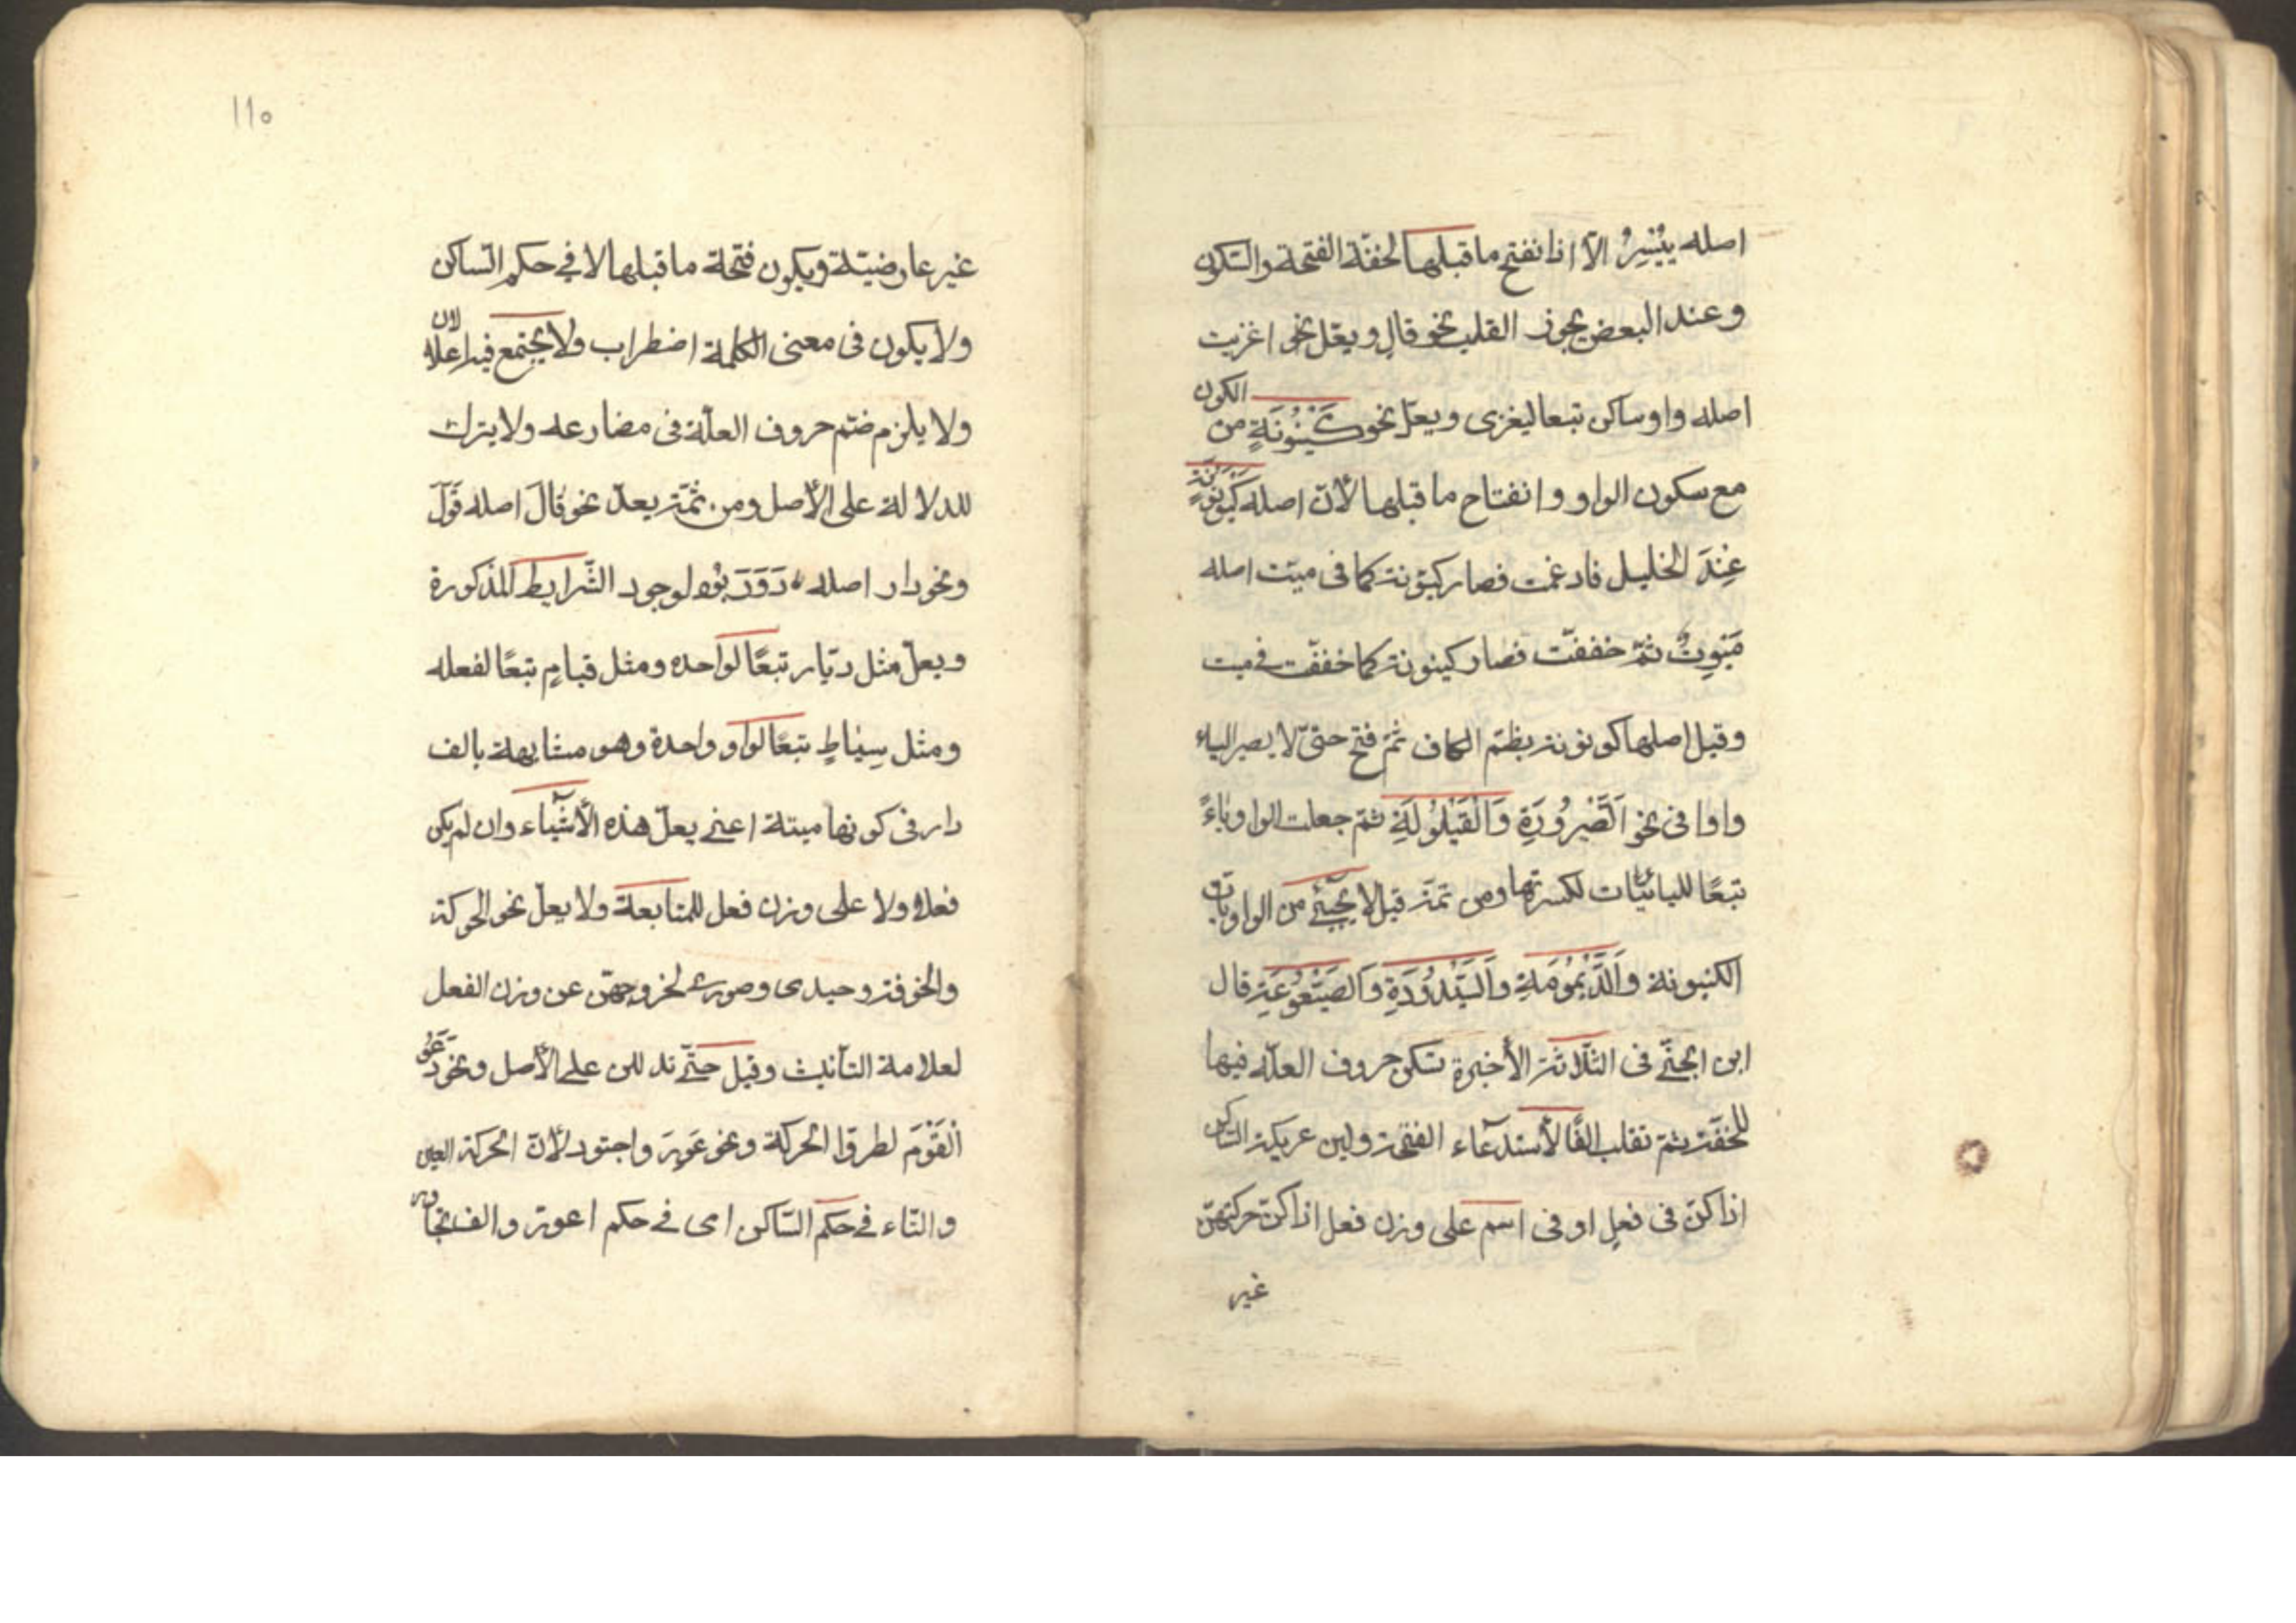 اصله يُيْسِرُ الّا اذا نفتح ما قبلها لخفّة الفتحة والسّكون
وعند البعض يجوز القلب نحو قال ويعلّ نحو اغزيت
اصله واو ساكن تبعا ليغزى ويعلّ نحو كَيْنُونَةٍ من الكون
مع سكون الواو وانفتاح ما قبلها لأنّ اصله كَيْوَنُونَةٍ
عِنْدَ الخليل فادغمت فصار كيّونة كما فى ميّت اصله
مَيْوِتٌ ثمّ خففّت فصار كينونة كما خففّت فى ميت
وقيل اصلها كونونة بظمّ الكاف ثمّ فتح حتىّ لا يصير الياء
واوا فى نحو اَلصَّيْرُورَةِ وَالْقَيْلُولَةِ ثمّ جعلت الواو ياءً
تبعًا لليائيّات لكسرتها ومن ثمّة قيل لا يجيئ من الواويات
الكينونة وَالدَّيْمُومَةِ وَالسَّيْدُودَةِ وَالصَيْعُوعَةِ قال
ابن الجنّي فى الثلاثة الأخيرة تسكن حروف العلّه فيها
للخفّة ثمّ تقلب الفًا لأستدعاء الفتحة ولين عريكة السّاكن
اذا كنّ فى فعلٍ او فى اسم على وزن فعل اذا كنّ حركتهنّ
غير
١١٥
غير عارضيّة ويكون فتحة ما قبلها لا في حكم السّاكن
ولا يكون فى معنى الكلمة اضطراب ولا يجتمع فيه اعلالان
ولا يلزم ضمّ حروف العلّة فى مضارعه ولا يترك
للدلالة على الأصل ومن ثمّة يعلّ نحو قَالَ اصله قَوَلَ
ونحو دار اصله دَوَرَ لوجود الشّرايط المذكورة
ويعلّ مثل ديّار تبعًا لواحده ومثل قيامٍ تبعًا لفعله
ومثل سِيَاطٍ تبعًا لواو واحدة وهو مشابهة بالف
دار فى كونها ميتة اعنى يعلّ هذه الأشياء وان لم يكن
فعلاً ولا على وزن فعل للمتابعة ولا يعلّ نحو الحوكة
والخوفة وحيدى وصورى لخروجهنّ عن وزن الفعل
لعلامة التأنيث وقيل حتّى تدللن على الأصل ونحو دَعَوُ
اْلقَوْمَ لطروّا الحركة ونحو عَوِرَ واجتور لأنّ الحركة العين
والتاء فى حكم السّاكن اى فى حكم اعورّ والف تجاور